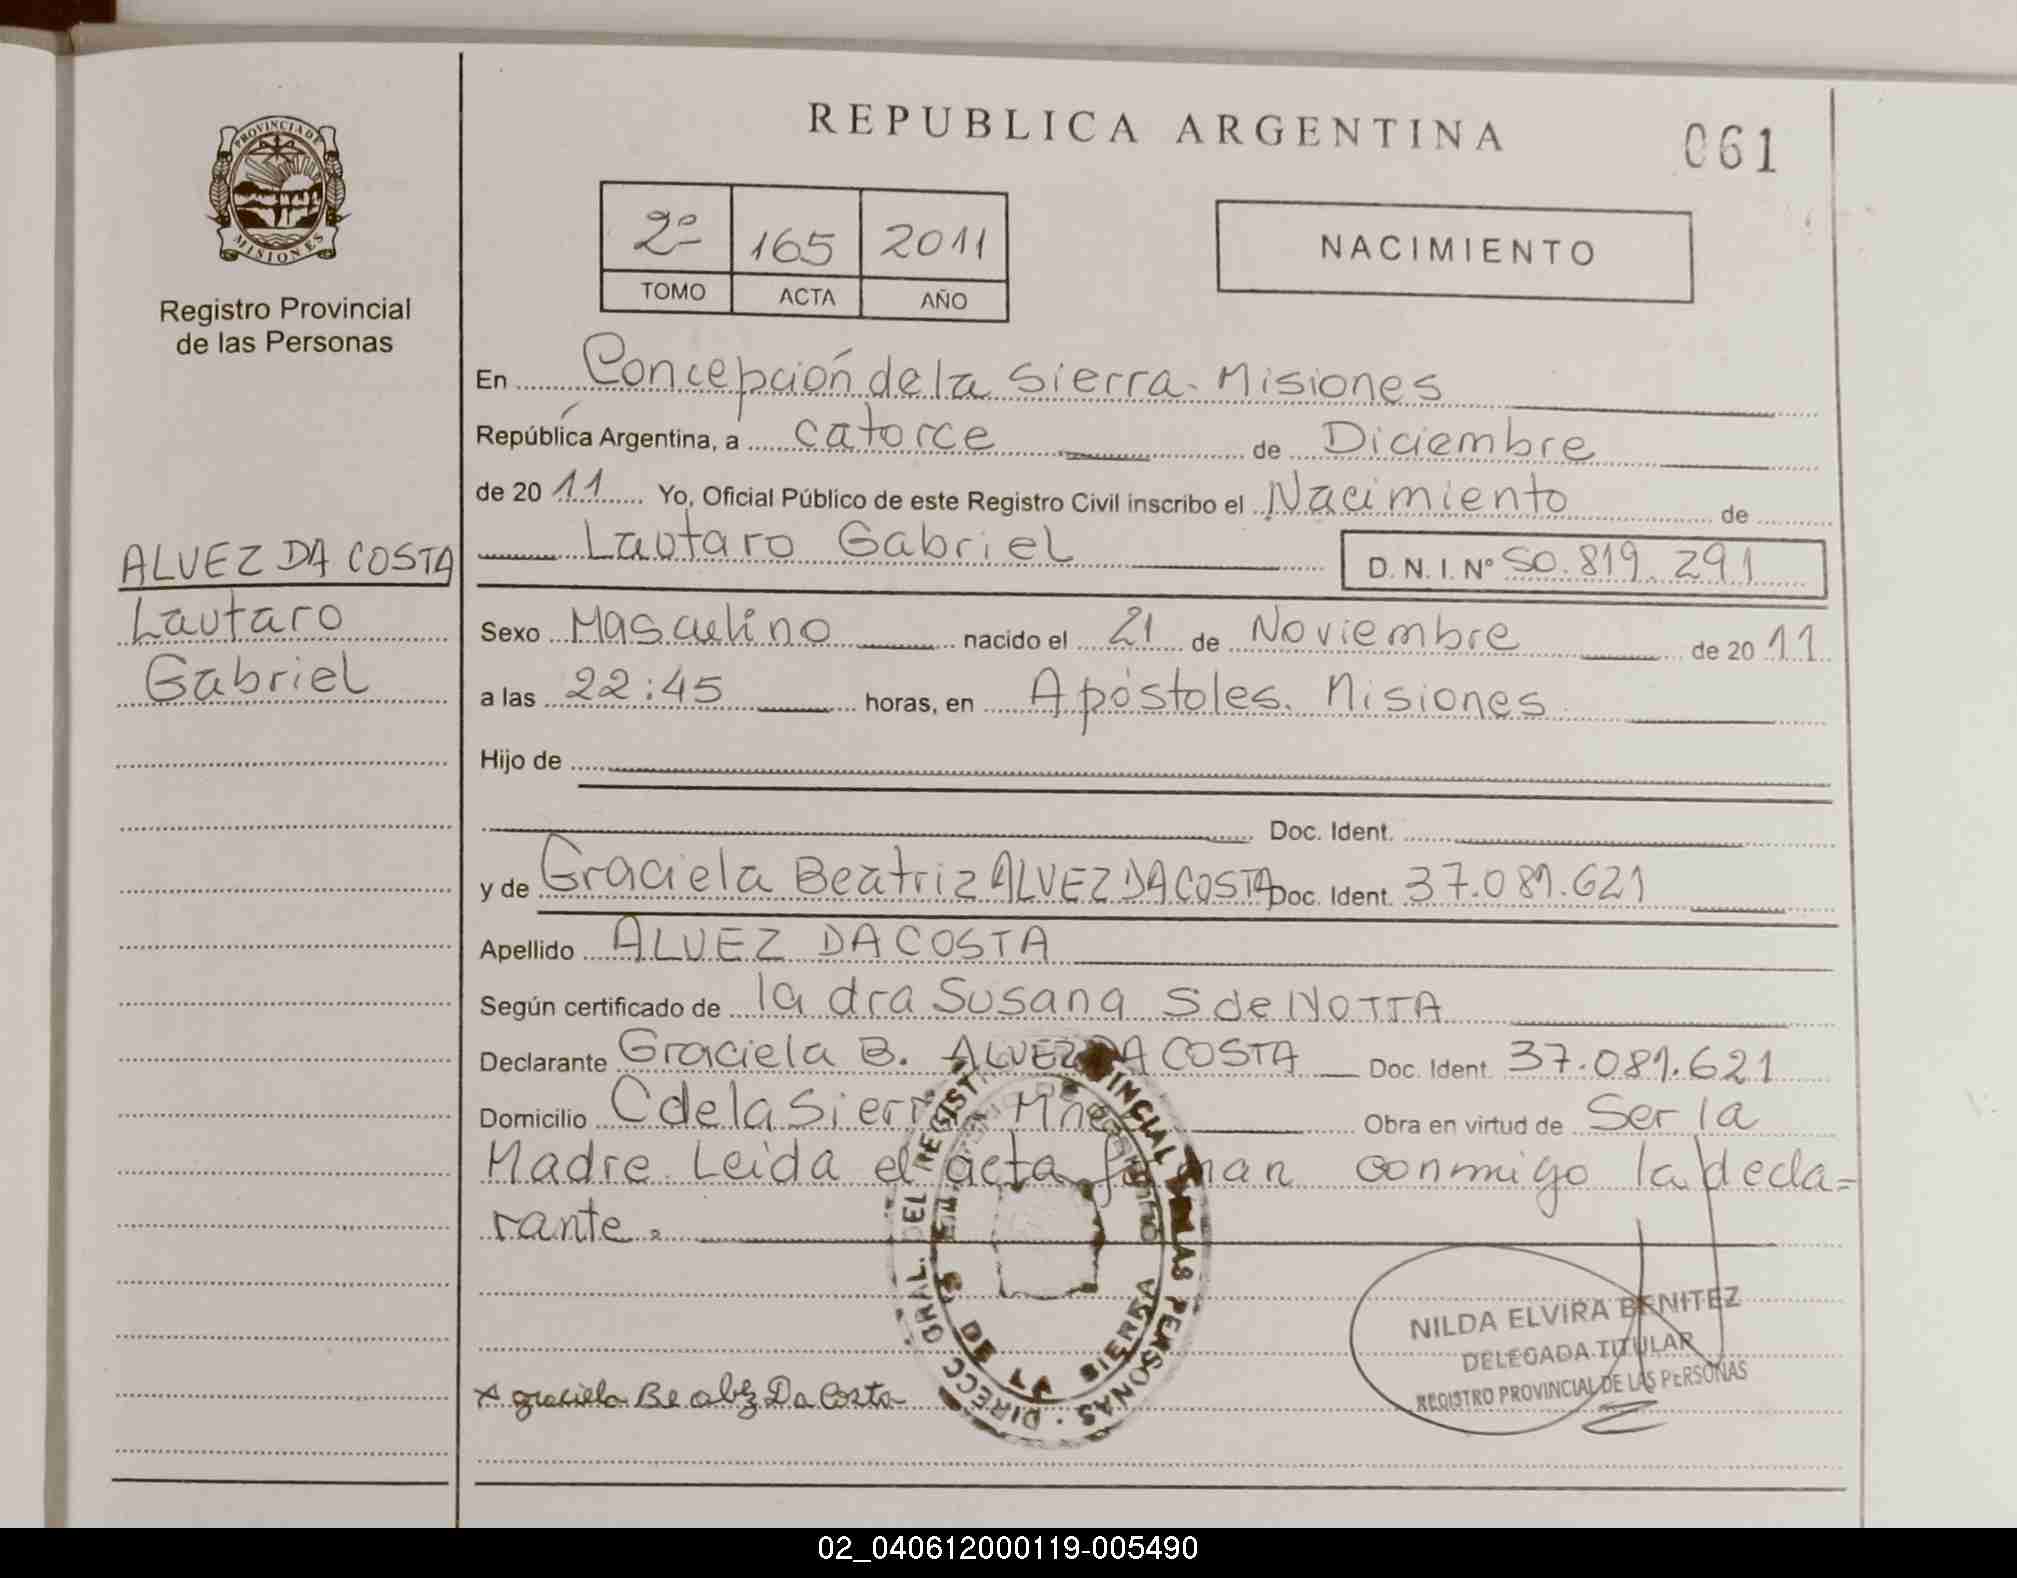 REPUBLICA ARGENTINA
061
PROVINCIA DE
MISIONES
Registro Provincial
de las Personas
2º 165 2011
TOMO ACTA AÑO
NACIMIENTO
En Concepción de la Sierra. Misiones
República Argentina, a catorce de Diciembre
de 20 11 Yo, Oficial Público de este Registro Civil inscribo el Nacimiento de
ALVEZ DA COSTA
Lautaro
Gabriel
Lautaro Gabriel D.N.I. Nº 50.819.291
Sexo Masculino nacido el 21 de Noviembre de 20 11
a las 22:45 horas, en Apóstoles. Misiones
Hijo de
Doc. Ident.
y de Graciela Beatriz ALVEZ DA COSTA Doc. Ident. 37.081.621
Apellido ALVEZ DA COSTA
Según certificado de la dra Susana S de NOTTA
Declarante Graciela B. ALVEZ DA COSTA Doc. Ident. 37.081.621
Domicilio C de la Sierra Mnes Obra en virtud de Ser la
Madre. Leida el acta firman conmigo la decla=
rante.
DIRECC GRAL. DEL REGIST PROVINCIAL DE LAS PERSONAS
DE LA SIERRA
NILDA ELVIRA BENITEZ
DELEGADA TITULAR
REGISTRO PROVINCIAL DE LAS PERSONAS
x graciela Be Da Costa
02_040612000119-005490